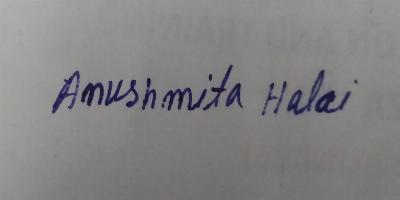 Anushmita Halai